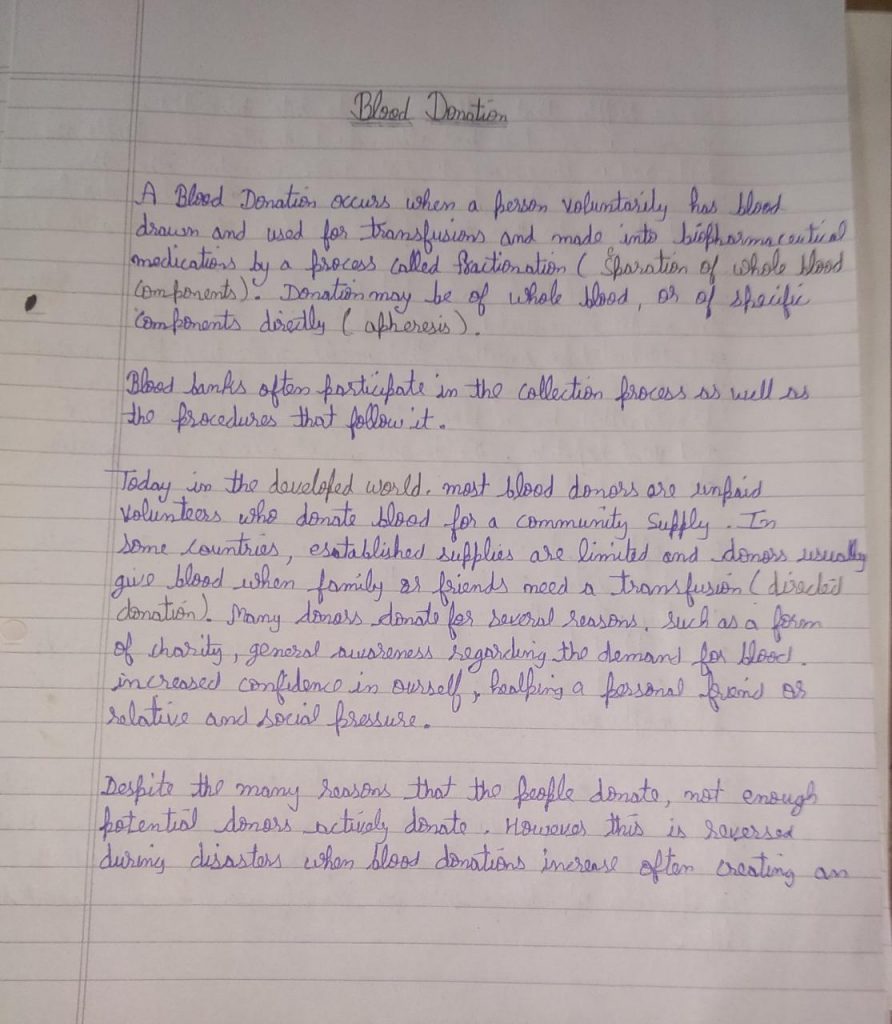 Blood Donation
A Blood Donation occurs when a person voluntarily has blood
drawn and used for transfusions and made into biopharmaceutical
medications by a process called fractionation ( Sparation of whole blood
Components). Donation may be of whole blood, or of specific
Components directly ( apheresis ).
Blood banks often participate in the collection process as well as
the procedures that follow it.
Today in the developed world. most blood donors are unpaid
volunteers who donate blood for a community supply. In
some countries, esatablished supplies are limited and donors usually
give blood when family or friends need a transfusion ( directed
donation). Many donors donate for several reasons, such as a form
of charity, general awareness regarding the demand for blood.
increased confidence in ourself, healping a personal friend or
relative and social pressure.
Despite the many reasons that the people donate, not enough
potential donors actively donate. However this is reversed
during disasters when blood donations increase often creating an